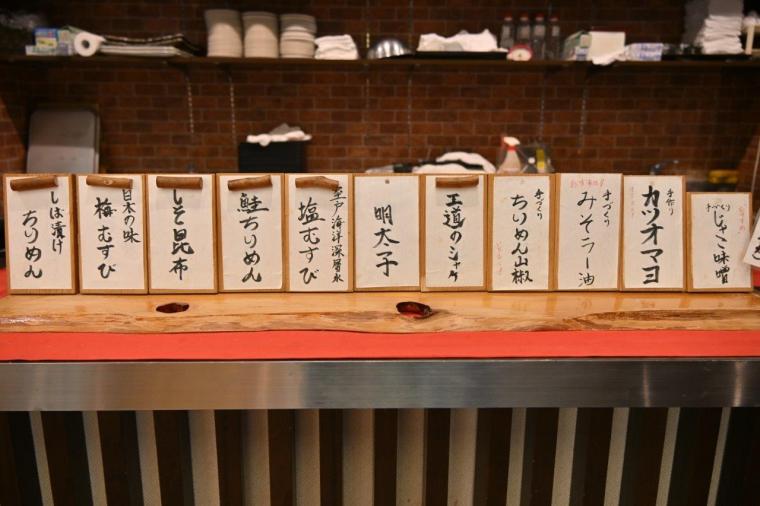 しば漬け
ちりめん
日本の味
梅むすび
しそ昆布
鮭ちりめん
室戸海洋深層水
塩むすび
明太子
工道のシャケ
手づくり
ちりめん山椒
手づくり
みそラー油
手作り
カツオマヨ
手づくり
じゃこ味噌